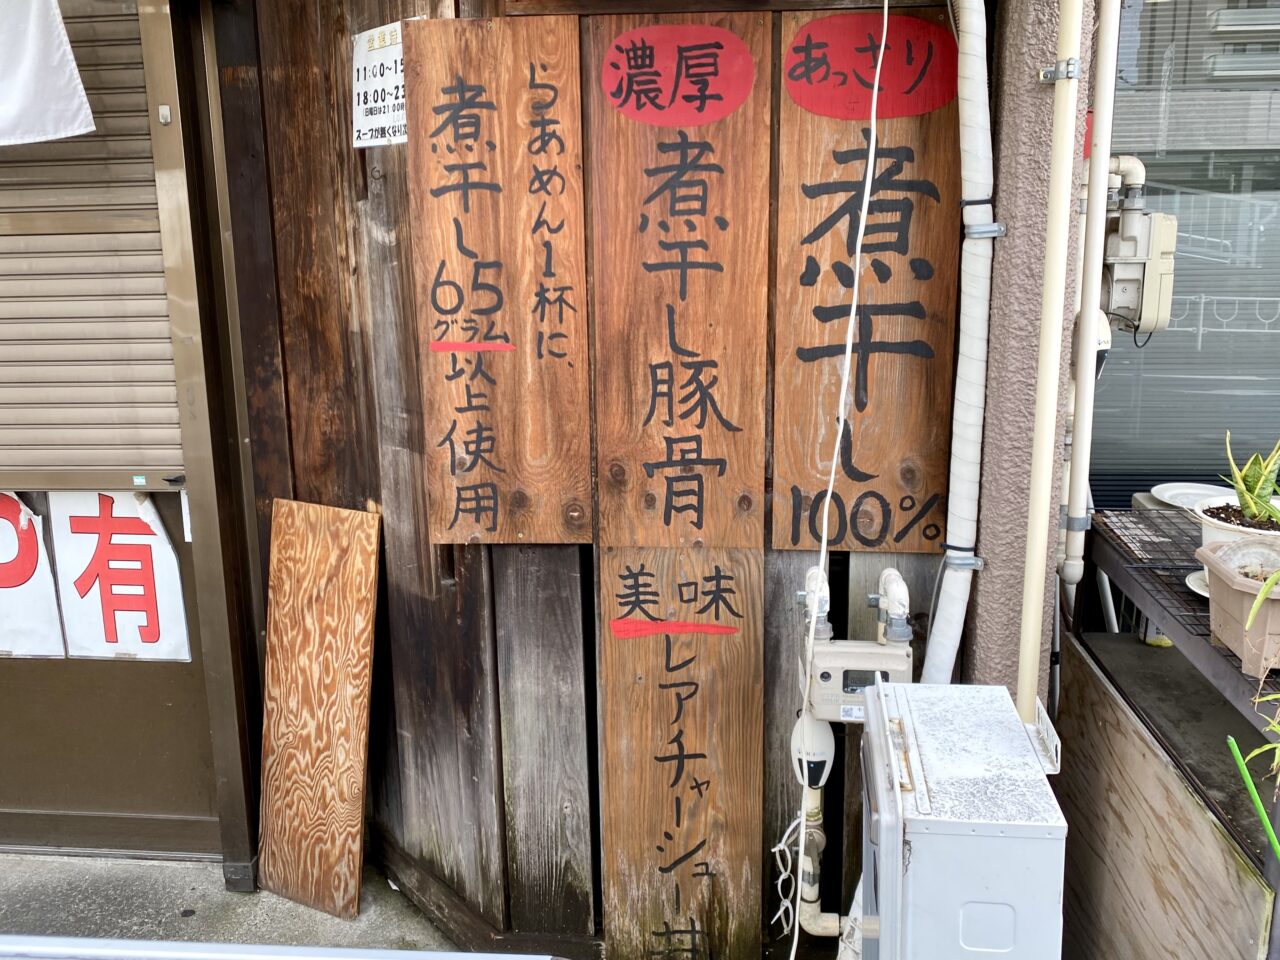 あっさり
煮干し
100%
濃厚
煮干し豚骨
美味
レアチャーシュー丼
らあめん1杯に、
煮干し65グラム以上使用
営業時
11:00~15
18:00~23
(日曜日は21:00時
スープが無くなり次
有
P